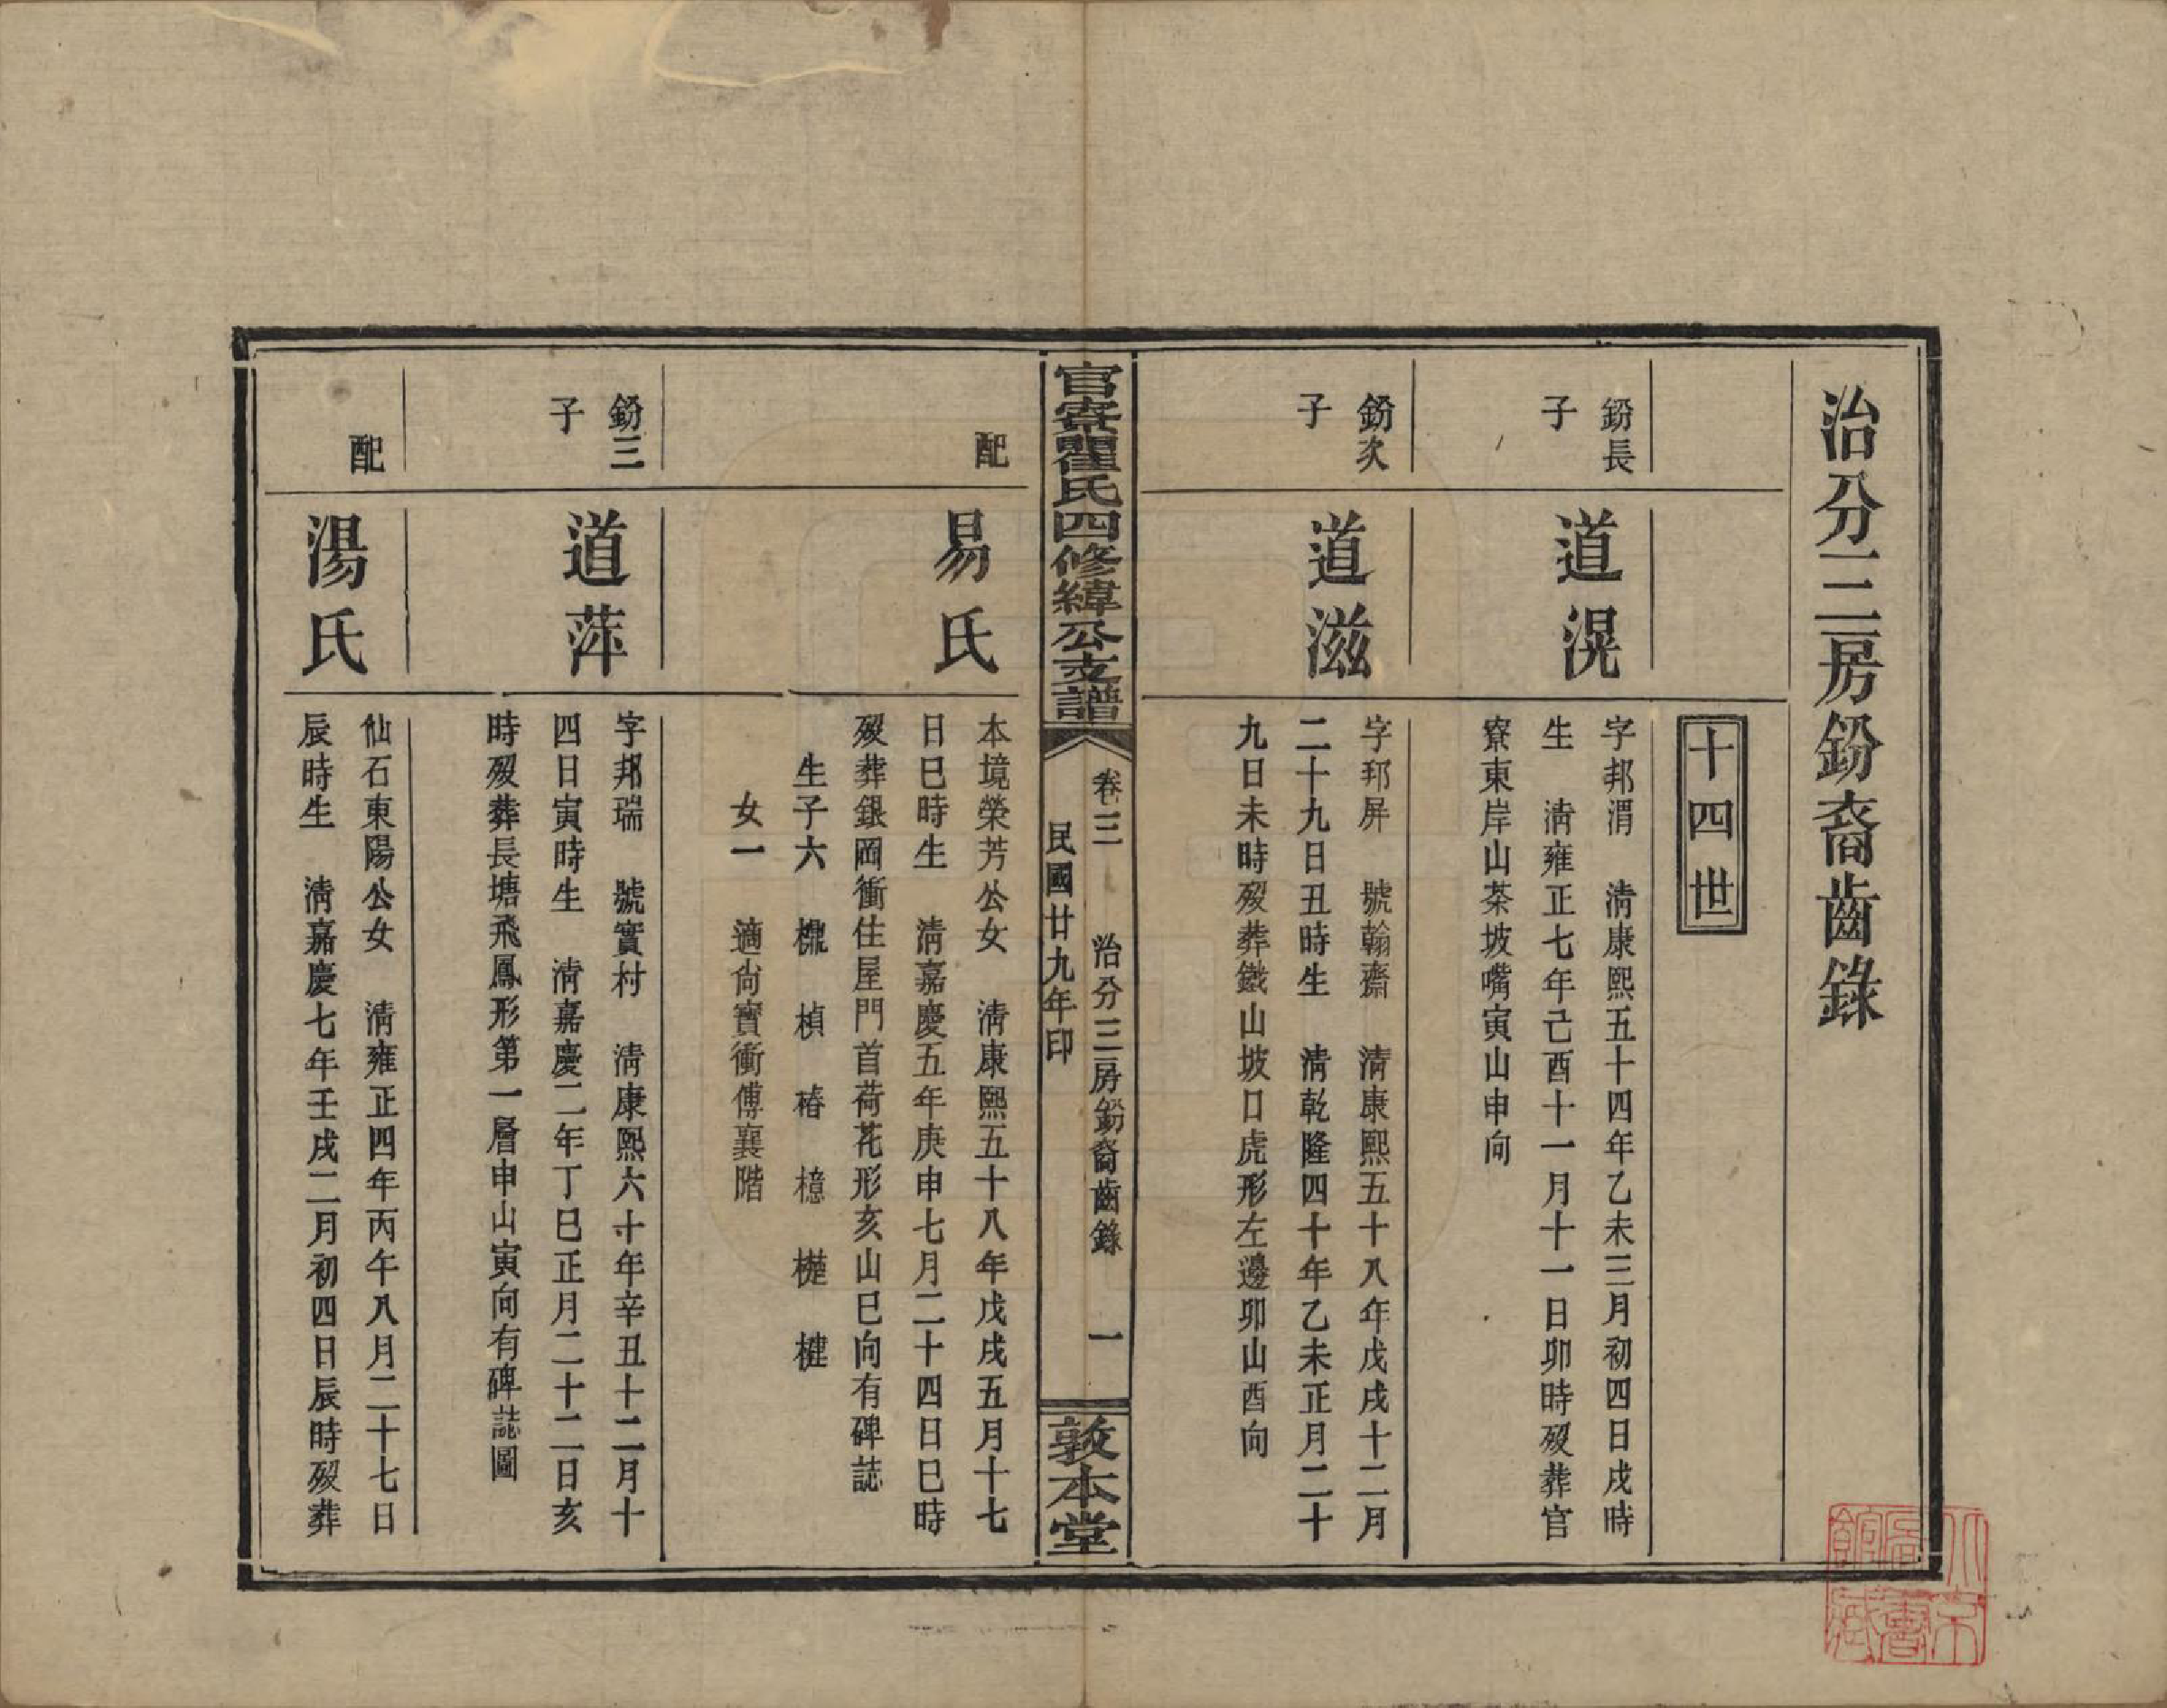 治分三房鈖裔齒錄
十四世
鈖長
子
道滉
字邦渭　清康熙五十四年乙未三月初四日戌時
生　清雍正七年己酉十一月十一日卯時歿葬官
寮東岸山茶坡嘴寅山申向
鈖次
子
道滋
字邦屏　號翰齋　清康熙五十八年戊戌十二月
二十九日丑時生　清乾隆四十年乙未正月二十
九日未時歿葬鐵山坡口虎形左邊卯山酉向
官寮瞿氏四修緯公支譜
卷三　治分三房鈖裔齒錄　一
民國廿九年印
敦本堂
配
易氏
本境榮芳公女　清康熙五十八年戊戌五月十七
日巳時生　清嘉慶五年庚申七月二十四日巳時
歿葬銀岡衝住屋門首荷花形亥山巳向有碑誌
生子六　楒　楨　椿　檍　　楗
女一　適尙寳衝傅襄階
鈖三
子
道萍
字邦瑞　號實村　清康熙六十年辛丑十二月十
四日寅時生　清嘉慶二年丁巳正月二十二日亥
時歿葬長塘飛鳳形第一層申山寅向有碑誌圖
配
湯氏
仙石東陽公女　清雍正四年丙午八月二十七日
辰時生　清嘉慶七年壬戌二月初四日辰時歿葬
北京
圖書
館藏